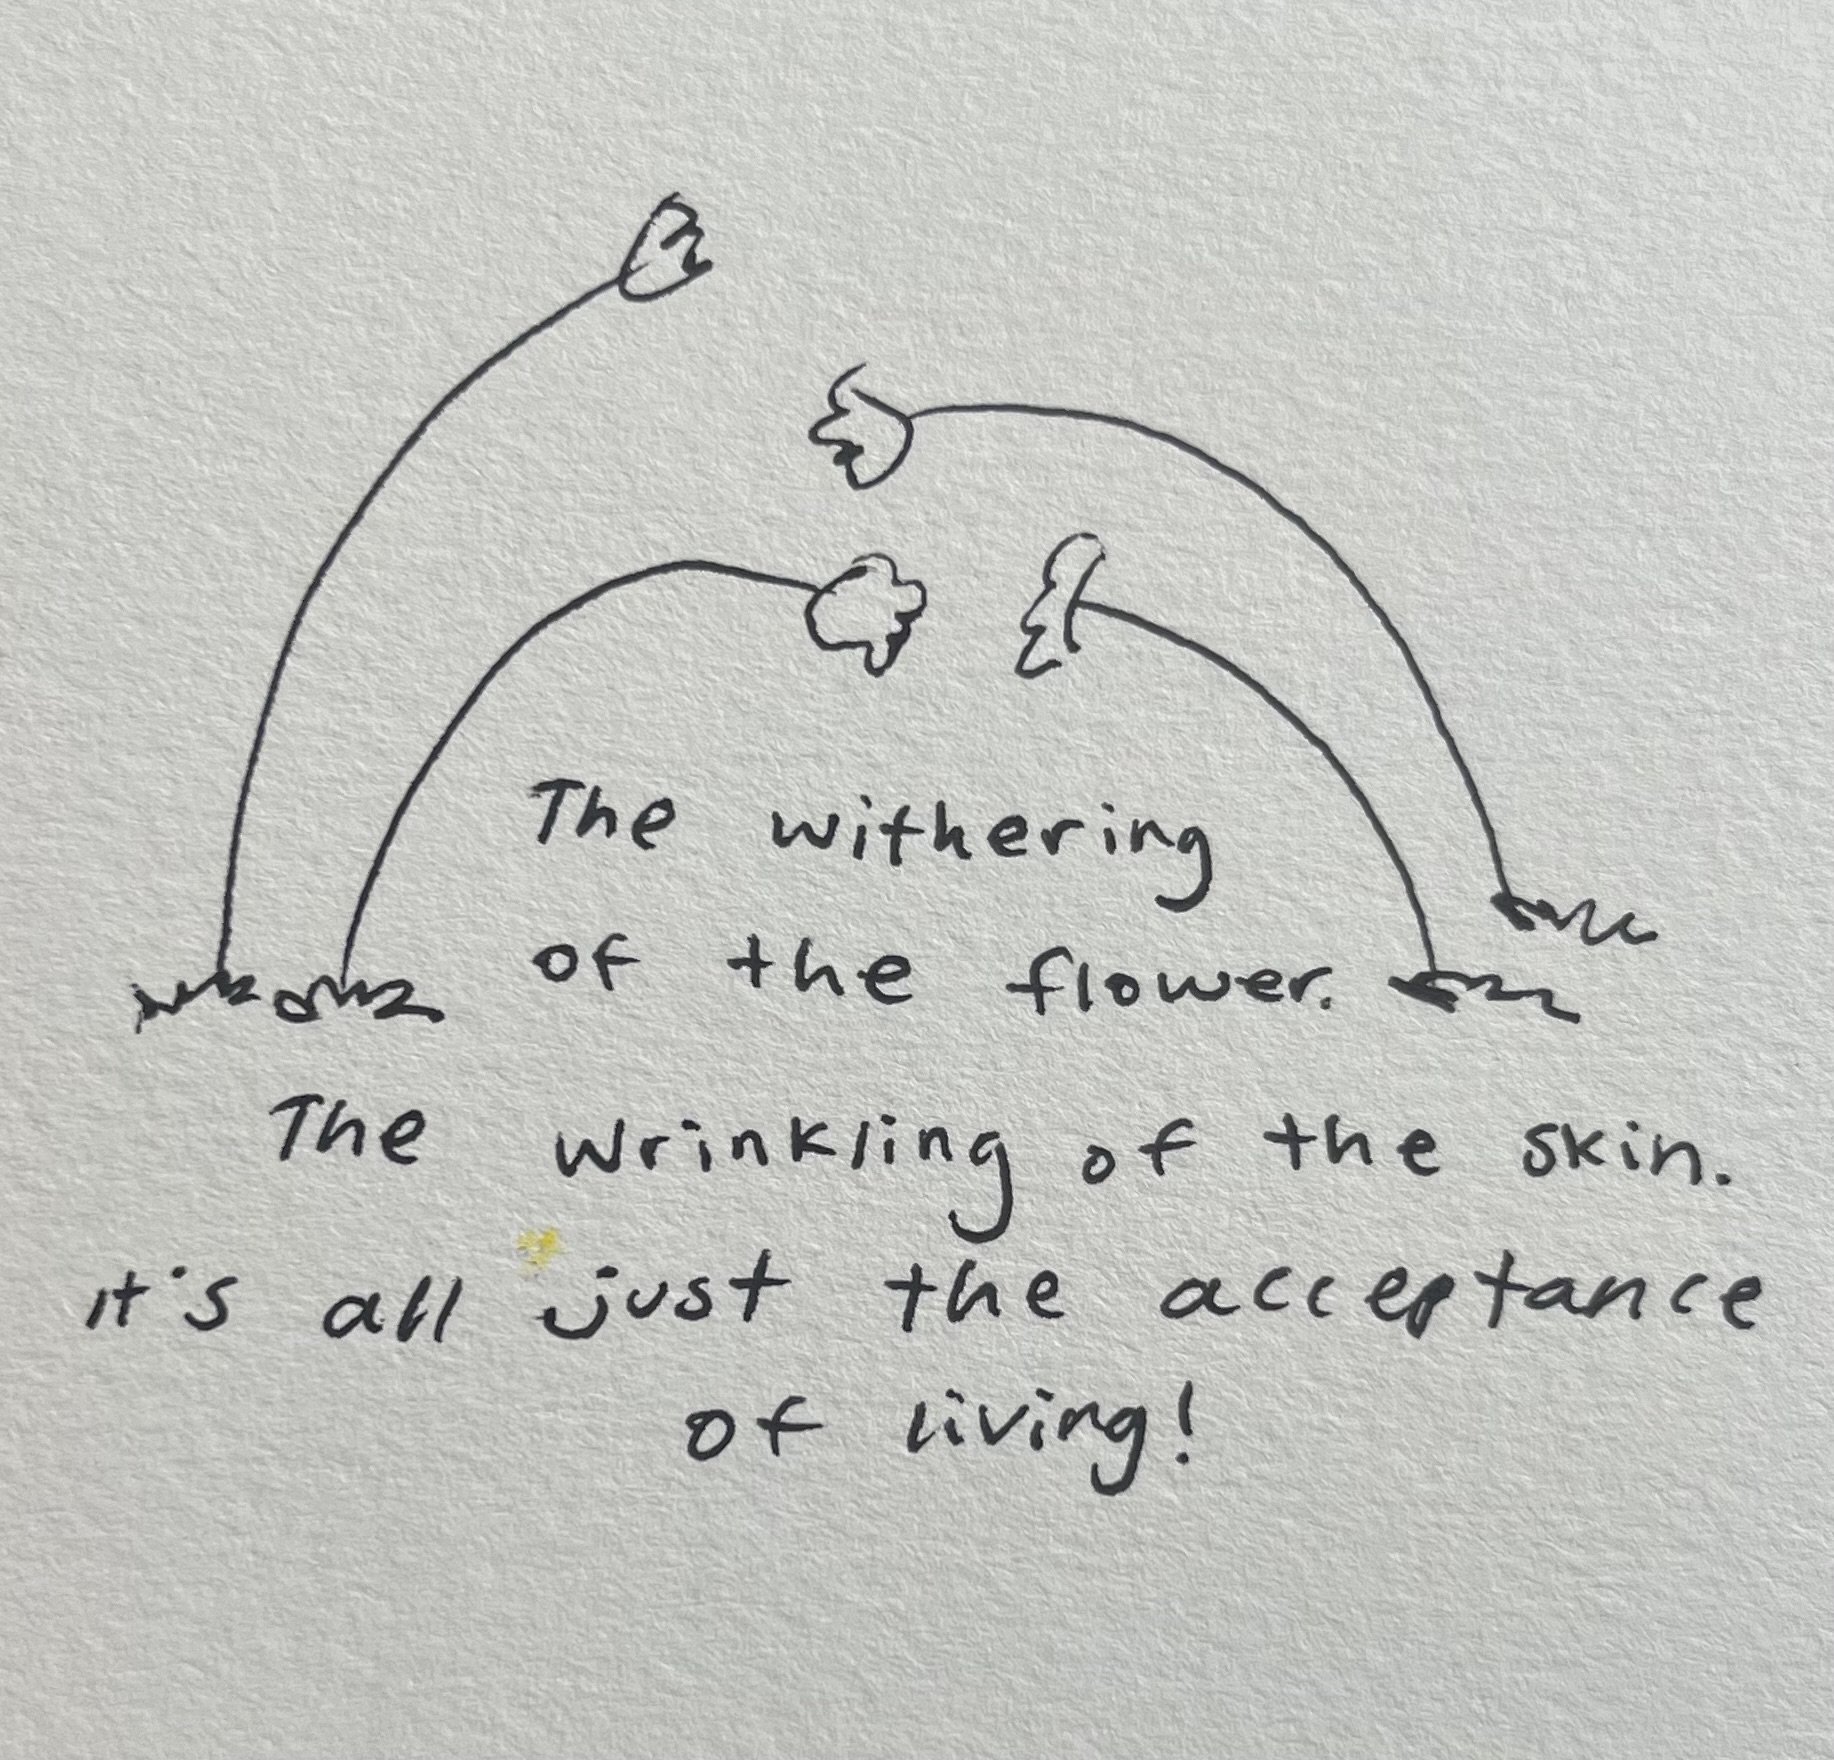 The withering
of the flower.
The wrinkling of the skin.
it's all just the acceptance
of living!